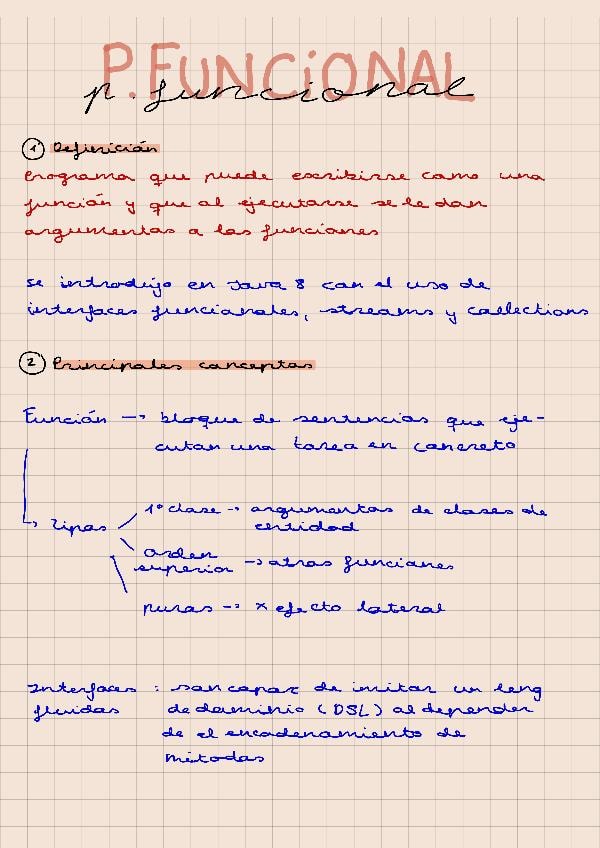 P. FUNCIONAL
p. funcional
1 Definición
Programa que puede escribirse como una
función y que al ejecutarse se le dan
argumentos a las funciones
se introdujo en Java 8 con el uso de
interfaces funcionales, streams y collections
2 Principales conceptos
Función → bloque de sentencias que eje-
cutan una tarea en concreto
1º clase → argumentos de clases de
entidad
Tipos
orden
superior → otras funciones
puras → x efecto lateral
Interfaces : son capaz de imitar un leng
fluidas de dominio (DSL) al depender
de el encadenamiento de
métodos